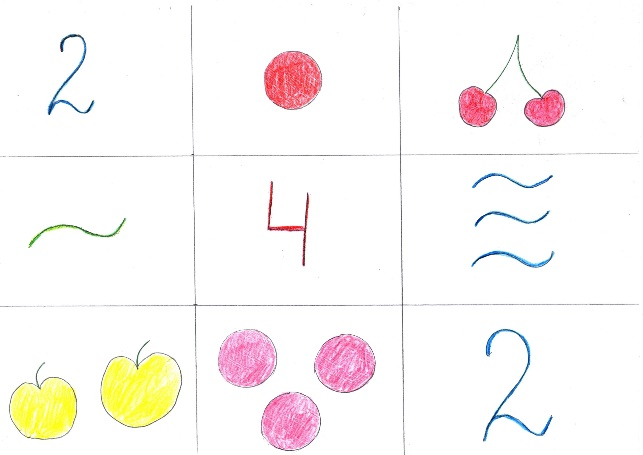 2
4
2